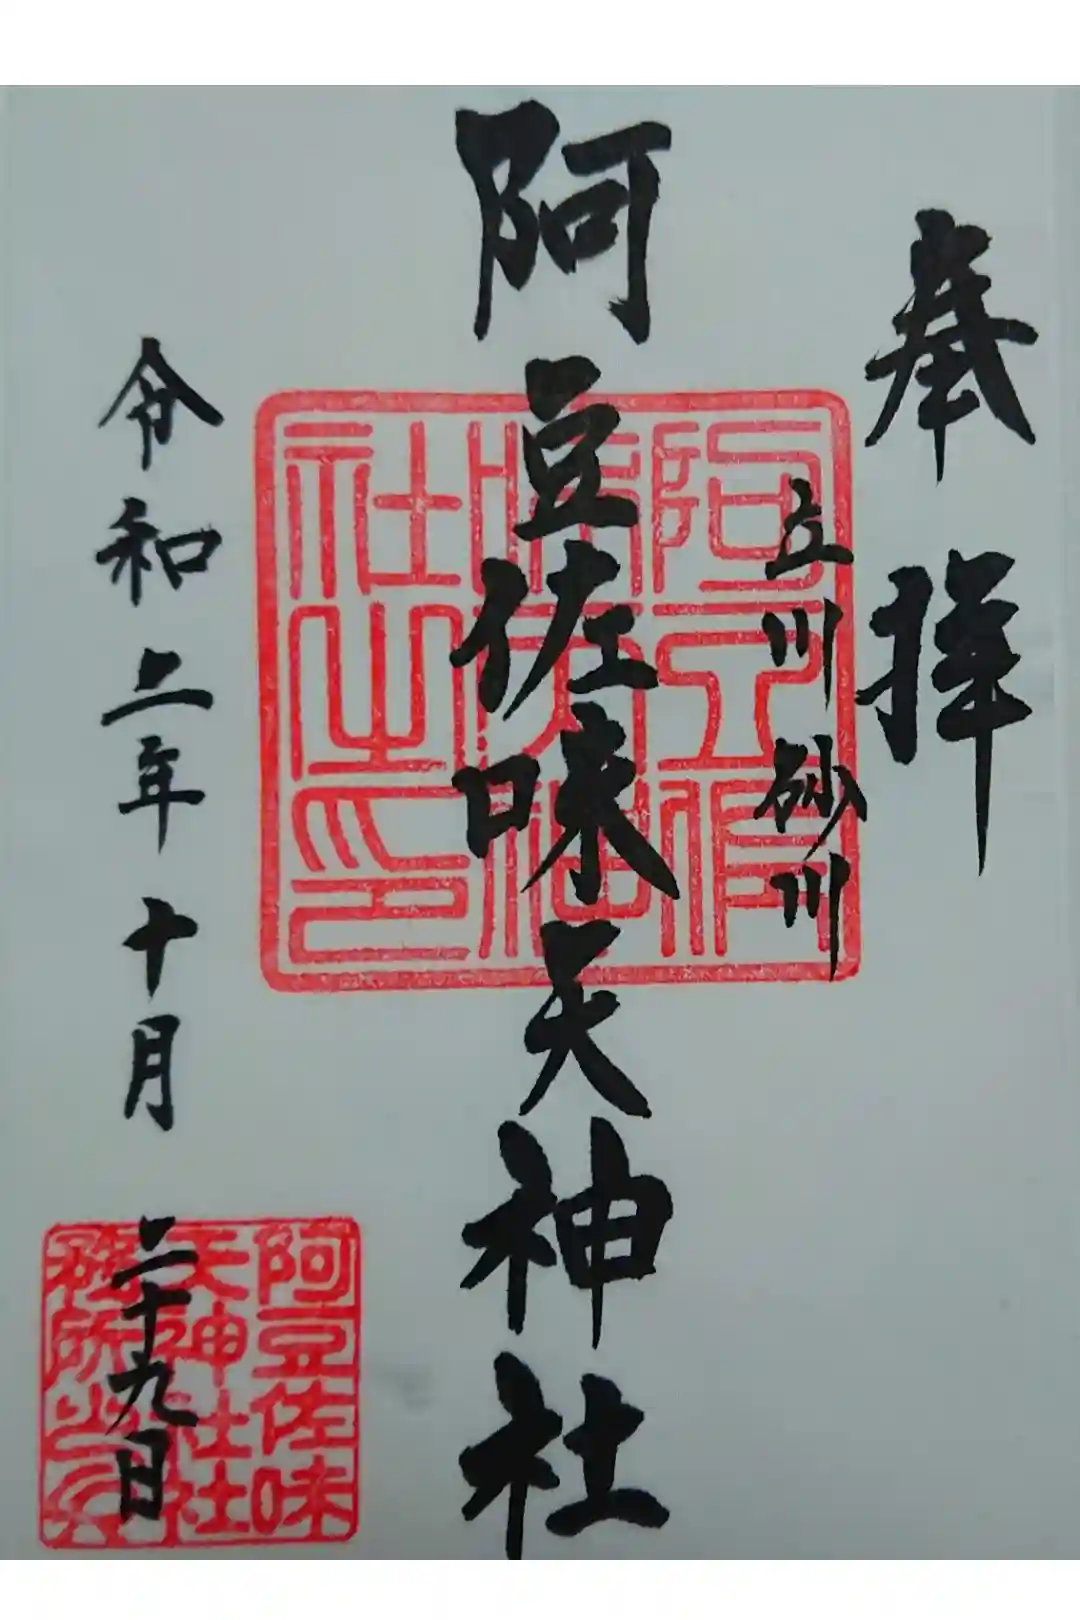 奉拝
立川砂川
阿豆佐味天神社
令和二年十月二十九日
阿豆佐味
天神社社
務所之印